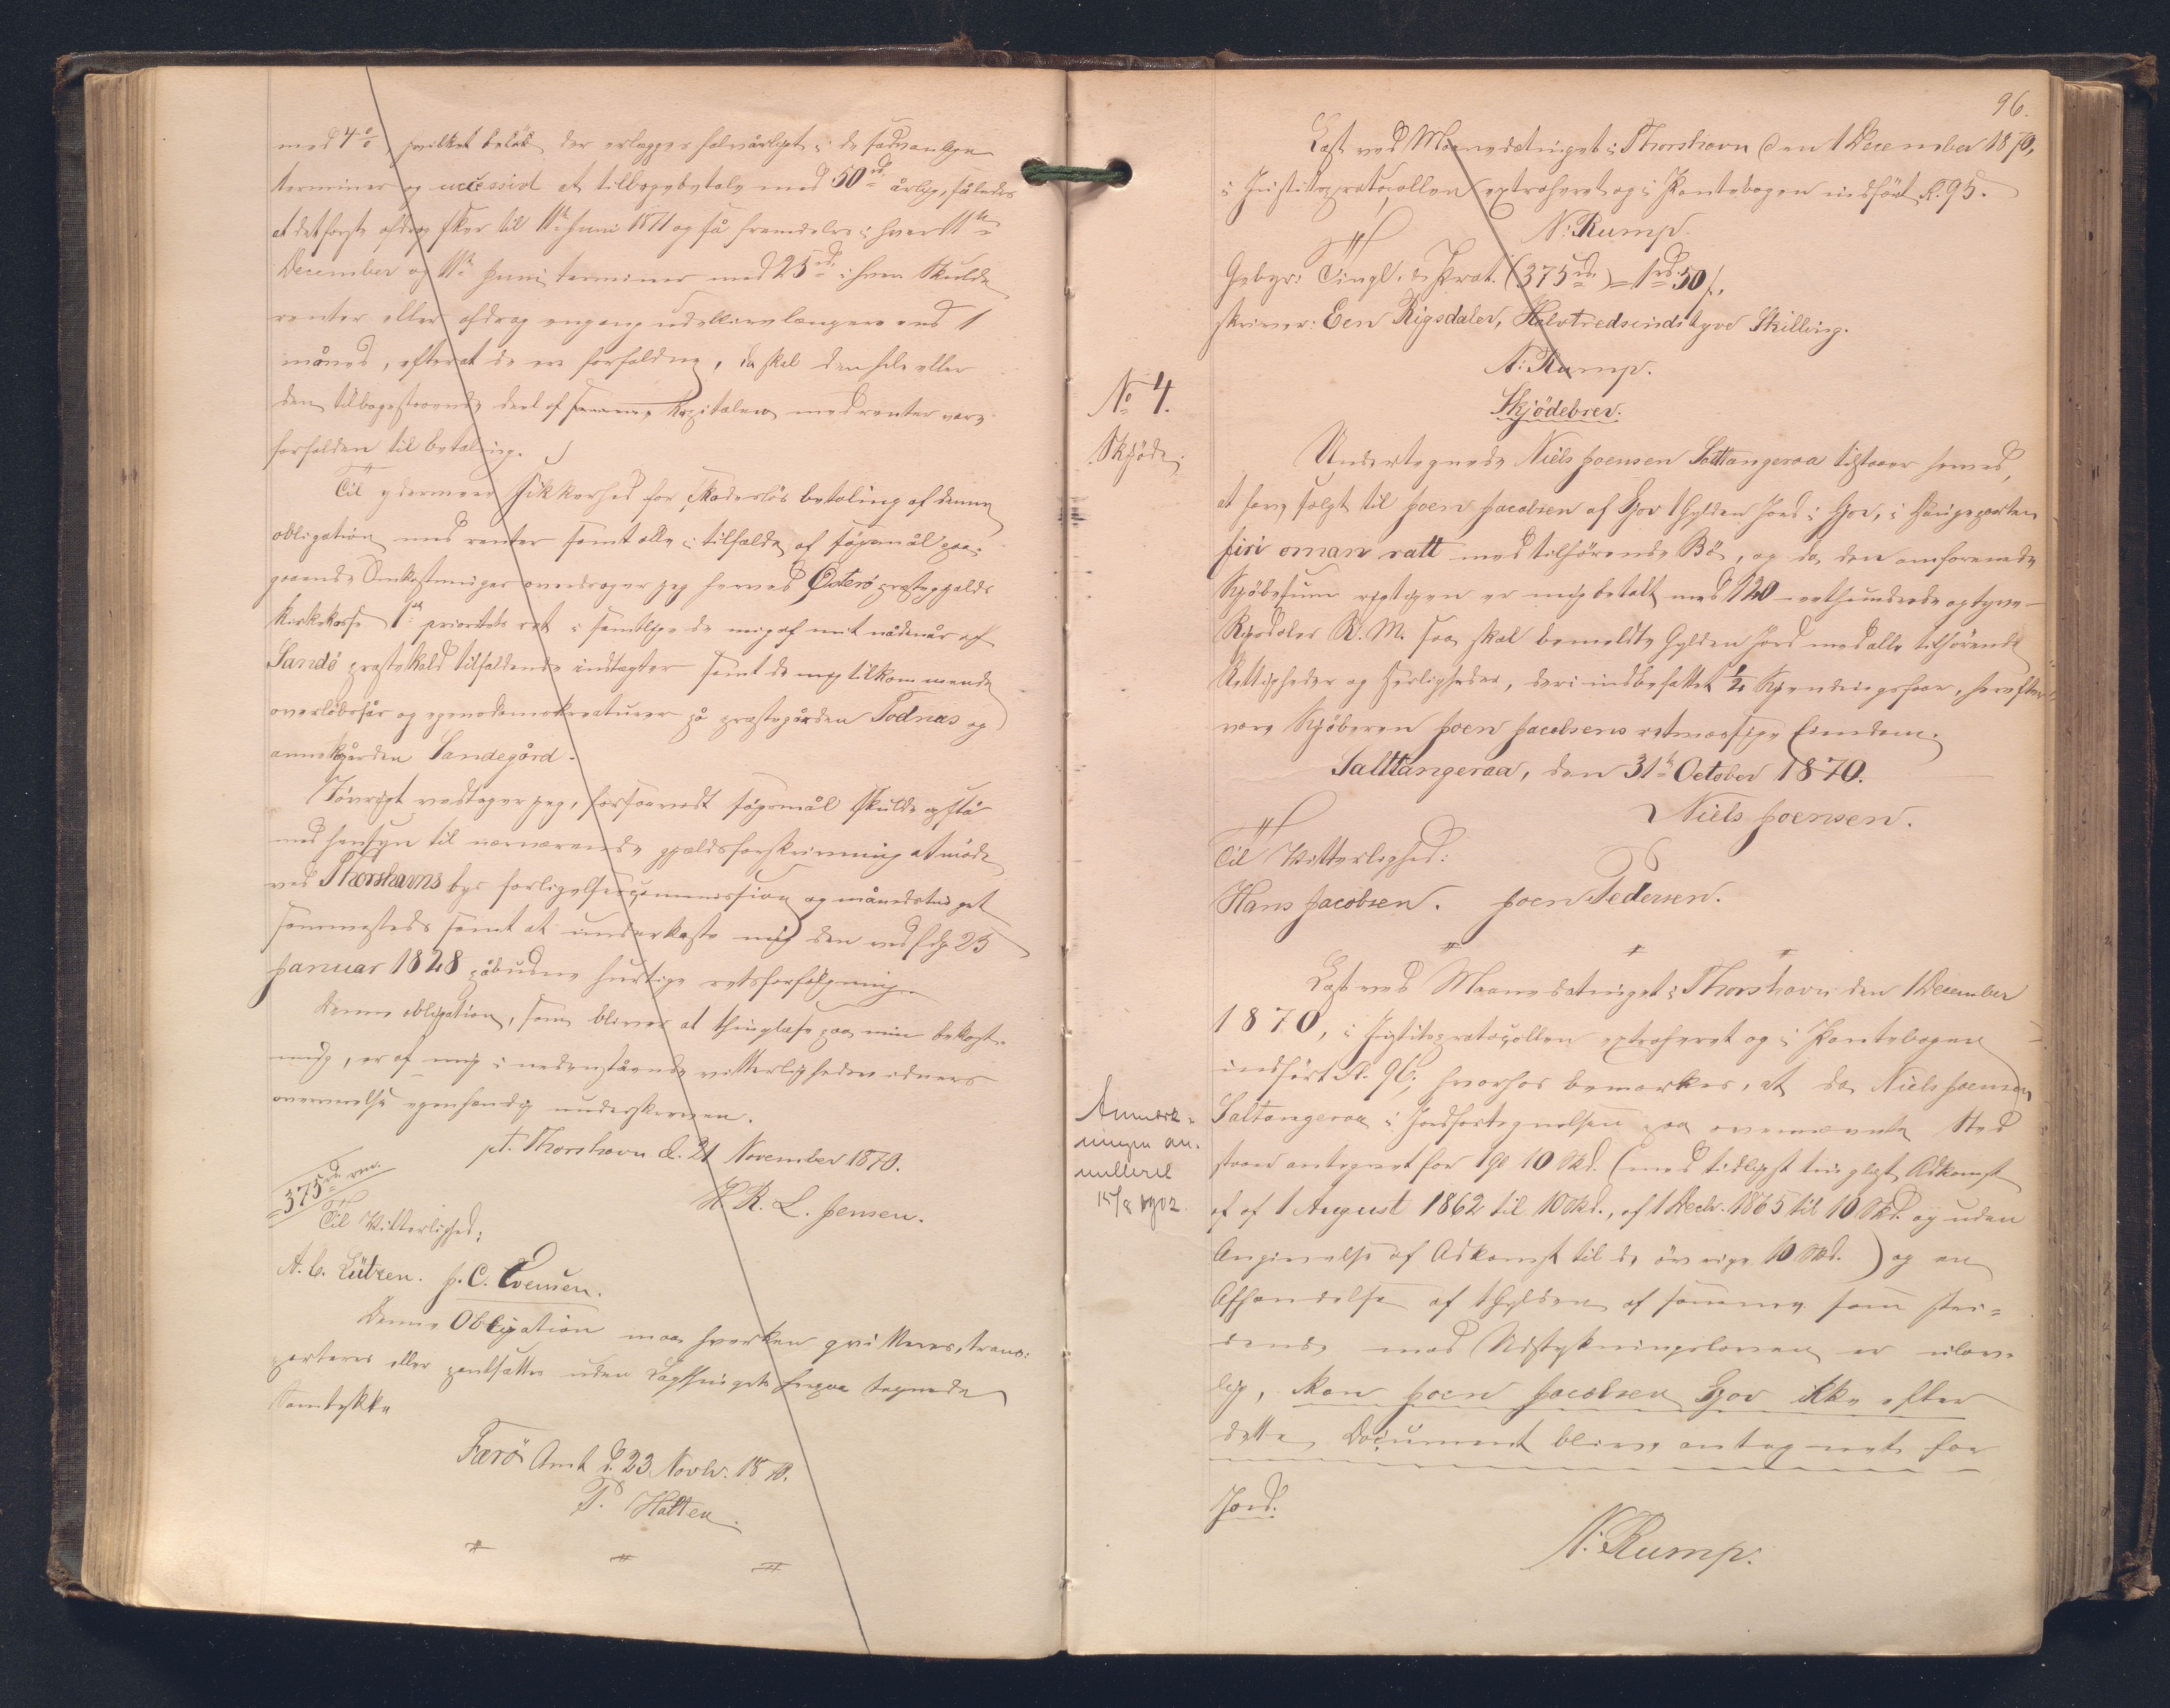 med 4 %, hvilket beløb der erlægges halvårligt i de sædvanlige
terminer og successivt at tilbagebetale med 50 rd. årlig, således
at det første afdrag sker til 11te Juni 1871 og så fremdeles i hver 11te
December og 11te Juni termines med 25 rd. i hver. Skulde
renter eller afdrag engang udeblive længere end 1
måned, efterat de ere forfaldne, da skal den hele eller
den tilbagestaaende deel af Kapitalen med renter være
forfalden til betaling.
Til ydermere sikkerhed for skadesløs betaling af denne
obligation med renter samt alle i tilfælde af søgsmål paa-
gaaende Omkostninger overdrager jeg herved Østerø præstegjælds
kirkekasse 1ste prioritets ret i samtlige de mig af mit nådenår af
Sandø præstekald tilfaldende indtægter samt de mig tilkommende
overløbsfår og egendomskreaturer på præstegården Todnæs og
annexgården Sandegård.
Iøvrigt vedtager jeg, forsaavidt søgsmål skulde opstå
med hensyn til nærværende gjældsforskrivning at møde
ved Thorshavns bys forligelsescommission og månedstinget
sammesteds samt at underkaste mig den ved frdg 25
Januar 1828 påbudne hurtige retsforfølgning.
Denne obligation, som bliver at thinglæse paa min bekost-
ning, er af mig i nedenstående vitterlighedsvidners
overværelse egenhændig underskreven.
pt. Thorshavn d. 21 November 1870.
375 rd. rm.
H. R. L. Jensen.
Til Vitterlighed:
A. C. Lützen. J. C. Evensen.
Denne Obligation maa hverken qvitteres, trans-
porteres eller pantsættes uden Lagthingets paategnede
Samtykke
Færö Amt d. 23 Novbr. 1870.
P. Holten.
96.
Læst ved Maanedstinget i Thorshavn den 1 December 1870,
i Justitsprotocollen extraheret og i Pantebogen indført fl. 95.
N: Rump.
Gebyr: Tingl. & Prot. (375 rd.) = 1 rd. 50 s.,
skriver: Een Rigsdaler, Halvtredsindstyve Skilling.
N: Rump.
No 4.
Skjøde.
Skjödebrev.
Undertegnede Niels Joensen Salttangeraa tilstaaer herved,
at have solgt til Joen Jacobsen af Gjov 1 Gylden Jord i Gjov, i Haugeparten
firi oman ratt med tilhörende Bö, og da den omforenede
Kjöbesum rigtigen er mig betalt med 120 - eethundrede og tyve -
Rigsdaler R. M. saa skal bemeldte Gylden Jord med alle tilhörende
Rettigheder og Herligheder, deri indbefattet 1/2 Kjendingsfaar, herefter
være Kjöberen Joen Jacobsens retmæssige Eiendom.
Salttangeraa, den 31te October 1870.
Niels Joensen.
Til Vitterlighed:
Hans Jacobsen. Joen Pedersen.
Læst ved Maanedstinget i Thorshavn den 1 December
1870, i Justitsprotocollen extraheret og i Pantebogen
indført fl. 96; hvorhos bemærkes, at da Niels Joensen
Saltangeraa i Jordfortegnelsen paa ovennævnte Sted
staaer antegnet for 1 Gl 10 Skd. (med tidligst tinglyst Adkomst
af 1 August 1862 til 10 Skd., af 1 Decbr. 1865 til 10 Skd. og uden
Angivelse af Adkomst til de øvrige 10 Skd.) og en
Afhændelse af 1 Gylden af samme som stri-
dende mod Udstykningsloven er ulov-
lig, kan Joen Jacobsen Gjov ikke efter
dette Document blive antegnet for
Jord.
N: Rump.
Anmærk-
ningen an-
nulleret
15/8 1902